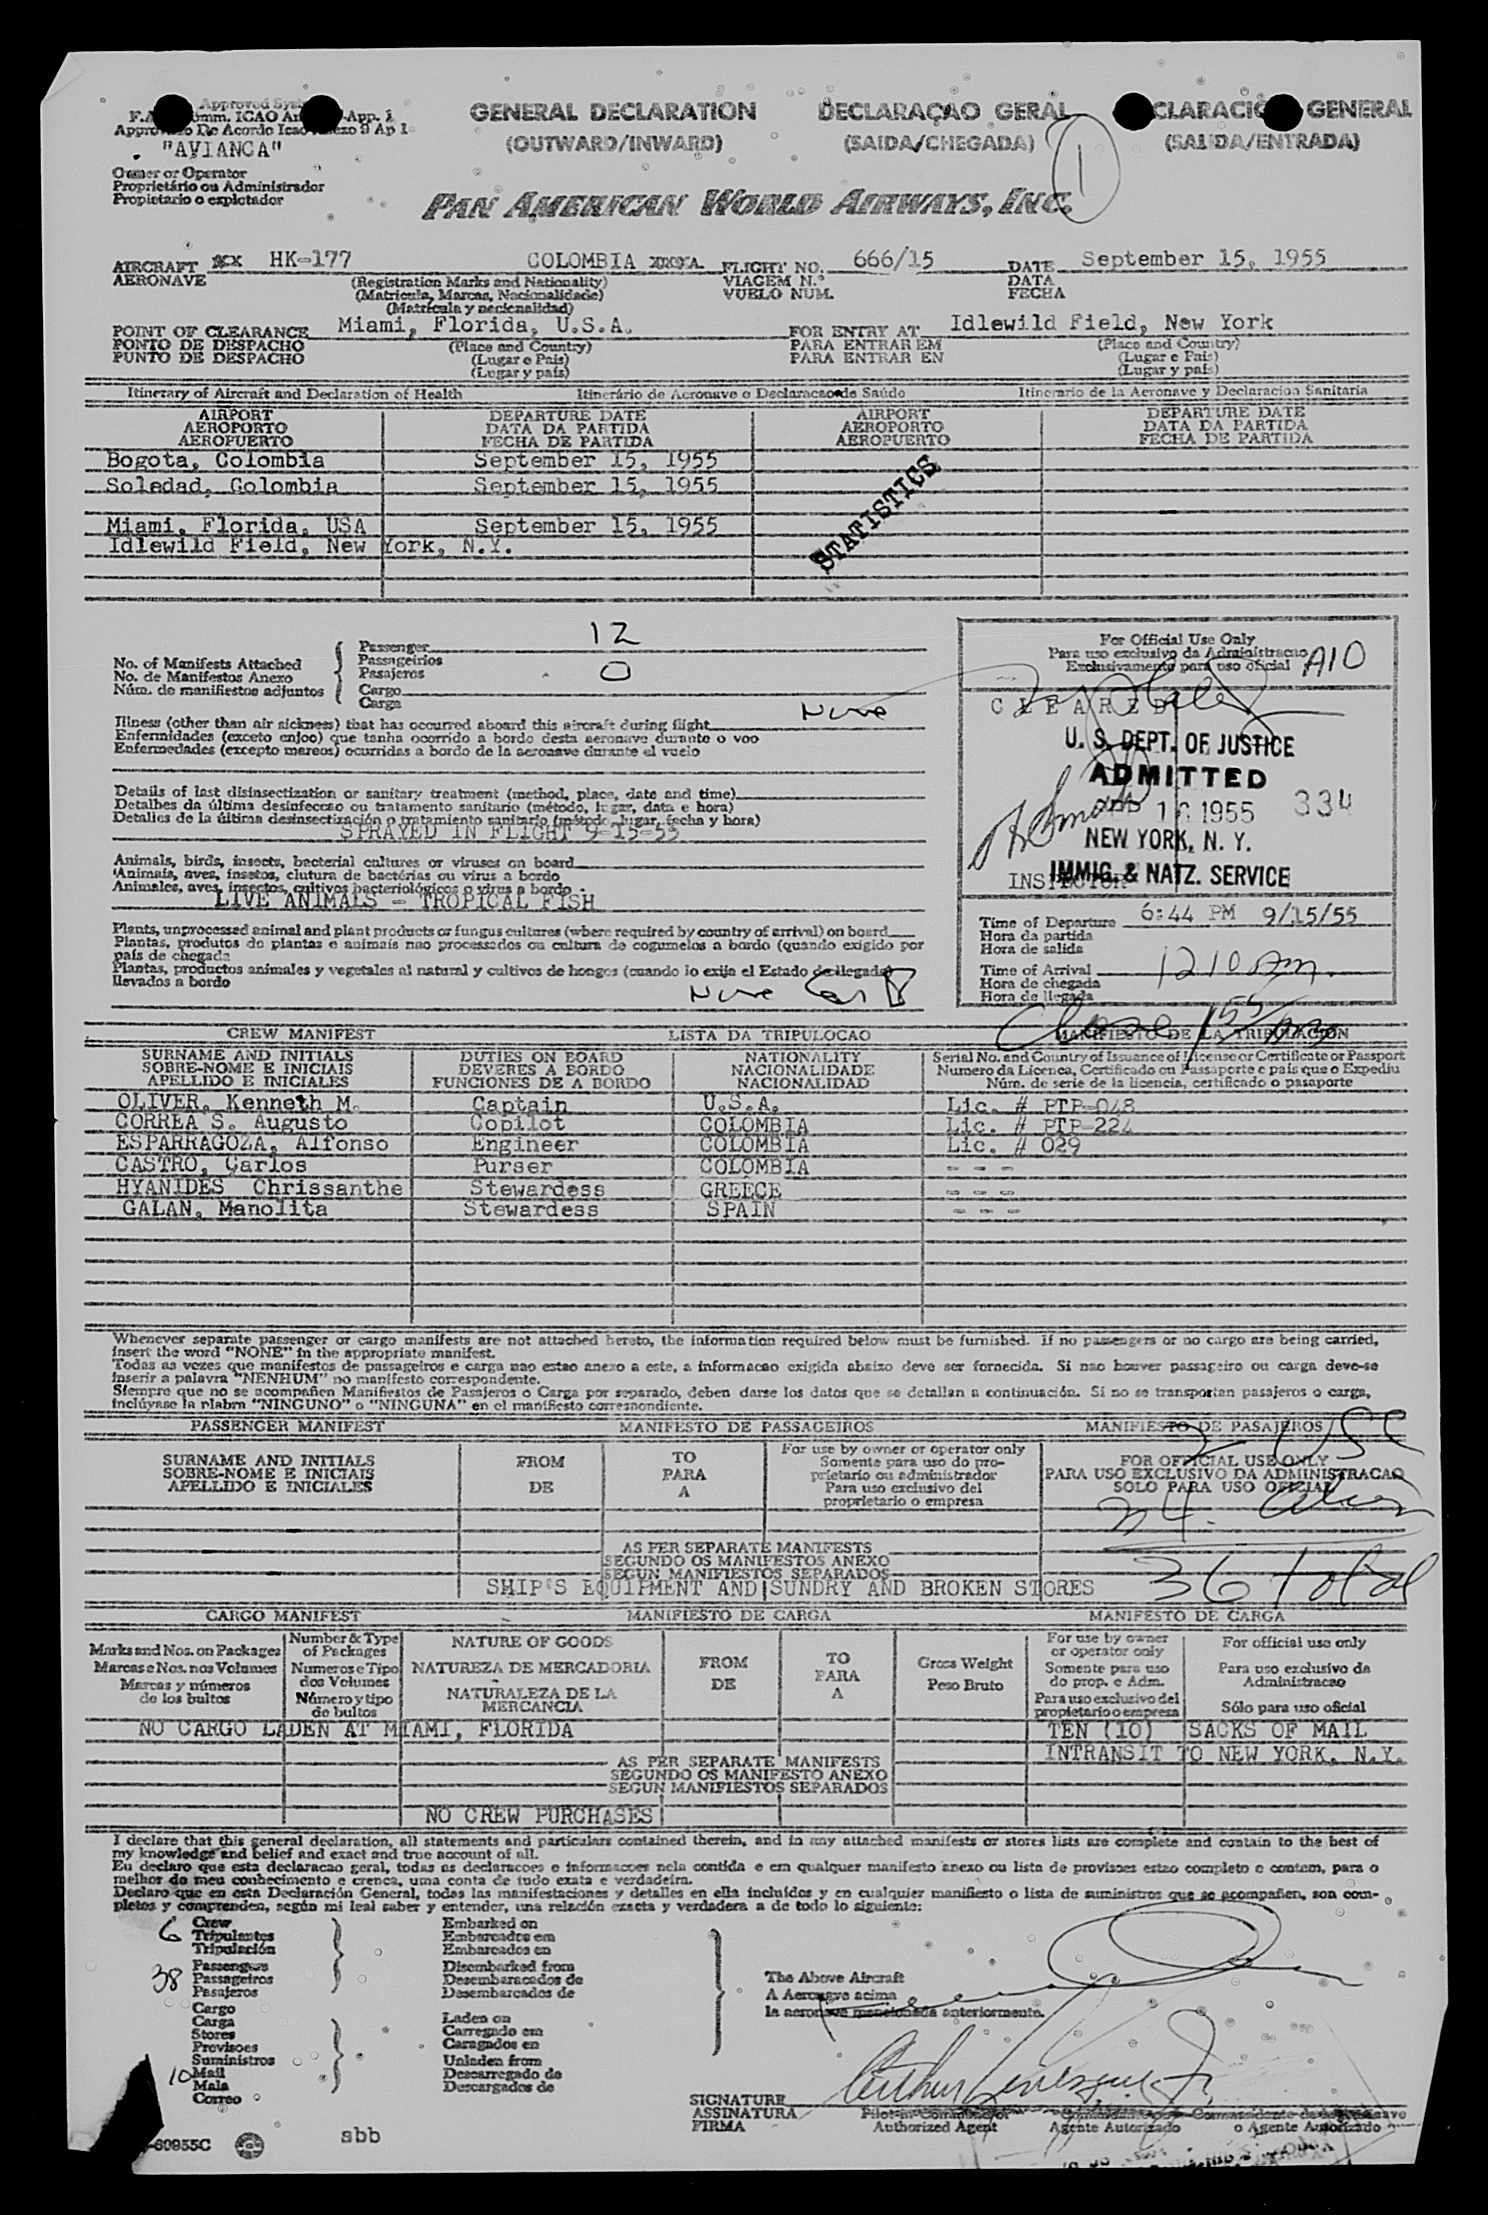 Approved Syst
F.A. Comm. ICAO An App. 1
Approvado De Acordo Icao Anexo 9 Ap 1
"AVIANCA"
Owner or Operator
Proprietário ou Administrador
Propietario o explotador
GENERAL DECLARATION
(OUTWARD/INWARD)
DECLARAÇAO GERAL
(SAIDA/CHEGADA)
CLARACIO GENERAL
(SALIDA/ENTRADA)
1
PAN AMERICAN WORLD AIRWAYS, INC.
AIRCRAFT HK-177 COLOMBIA FLIGHT NO. 666/15 DATE September 15, 1955
AERONAVE (Registration Marks and Nationality) VIAGEM N.° DATA
(Matricula, Marcas, Nacionalidade) VUELO NUM. FECHA
(Matricula y nacionalidad)
POINT OF CLEARANCE Miami, Florida, U.S.A. FOR ENTRY AT Idlewild Field, New York
PONTO DE DESPACHO (Place and Country) PARA ENTRAR EM (Place and Country)
PUNTO DE DESPACHO (Lugar e Pais) PARA ENTRAR EN (Lugar e Pais)
(Lugar y pais) (Lugar y pais)
Itinerary of Aircraft and Declaration of Health Itinerário de Aeronave e Declaracao de Saúde Itinerario de la Aeronave y Declaracion Sanitaria
AIRPORT DEPARTURE DATE AIRPORT DEPARTURE DATE
AEROPORTO DATA DA PARTIDA AEROPORTO DATA DA PARTIDA
AEROPUERTO FECHA DE PARTIDA AEROPUERTO FECHA DE PARTIDA
Bogota, Colombia September 15, 1955
Soledad, Colombia September 15, 1955
Miami, Florida, USA September 15, 1955
Idlewild Field, New York, N.Y.
STATISTICS
No. of Manifests Attached
No. de Manifestos Anexo
Núm. de manifiestos adjuntos
Passenger 12
Passageirios
Pasajeros 0
Cargo
Carga
Illness (other than air sickness) that has occurred aboard this aircraft during flight None
Enfermidades (exceto enjoo) que tenha ocorrido a bordo desta aeronave durante o voo
Enfermedades (excepto mareos) ocurridas a bordo de la aeronave durante el vuelo
Details of last disinsectization or sanitary treatment (method, place, date and time)
Detalhes da última desinfeccao ou tratamento sanitario (método, lugar, data e hora)
Detalles de la última desinsectización o tratamiento sanitario (método, lugar, fecha y hora)
SPRAYED IN FLIGHT 9-15-55
Animals, birds, insects, bacterial cultures or viruses on board
Animais, aves, insetos, clutura de bactérias ou virus a bordo
Animales, aves, insectos, cultivos bacteriológicos o virus a bordo
LIVE ANIMALS - TROPICAL FISH
Plants, unprocessed animal and plant products or fungus cultures (where required by country of arrival) on board
Plantas, produtos de plantas e animais nao processados ou cultura de cogumelos a bordo (quando exigido por
pais de chegada
Plantas, productos animales y vegetales al natural y cultivos de hongos (cuando lo exija el Estado de llegada)
llevados a bordo
None
For Official Use Only
Para uso exclusivo da Administracao
Exclusivamente para uso oficial A10
CLEARED
U. S. DEPT. OF JUSTICE
ADMITTED
16 1955 334
NEW YORK, N. Y.
IMMIG. & NATZ. SERVICE
INSPECTOR
Time of Departure 6:44 PM 9/15/55
Hora da partida
Hora de salida
Time of Arrival 1210 am
Hora de chegada
Hora de llegada
CREW MANIFEST LISTA DA TRIPULOCAO MANIFIESTO DE LA TRIPULACION
SURNAME AND INITIALS DUTIES ON BOARD NATIONALITY Serial No. and Country of Issuance of License or Certificate or Passport
SOBRE-NOME E INICIAIS DEVERES A BORDO NACIONALIDADE Numero da Licenca, Certificado ou Passaporte e pais que o Expediu
APELLIDO E INICIALES FUNCIONES DE A BORDO NACIONALIDAD Núm. de serie de la licencia, certificado o pasaporte
OLIVER, Kenneth M. Captain U.S.A. Lic. # PTP-048
CORREA S. Augusto Copilot COLOMBIA Lic. # PTP-224
ESPARRAGOZA, Alfonso Engineer COLOMBIA Lic. # 029
CASTRO, Carlos Purser COLOMBIA - - -
HYANIDES Chrissanthe Stewardess GREECE - - -
GALAN, Manolita Stewardess SPAIN - - -
Whenever separate passenger or cargo manifests are not attached hereto, the information required below must be furnished. If no passengers or no cargo are being carried,
insert the word "NONE" in the appropriate manifest.
Todas as vezes que manifestos de passageiros e carga nao estao anexo a este, a informacao exigida abaixo deve ser fornecida. Si nao houver passageiro ou carga deve-se
inserir a palavra "NENHUM" no manifesto correspondente.
Siempre que no se acompañen Manifiestos de Pasajeros o Carga por separado, deben darse los datos que se detallan a continuación. Si no se transportan pasajeros o carga,
inclúyase la plabra "NINGUNO" o "NINGUNA" en el manifiesto correspondiente.
PASSENGER MANIFEST MANIFESTO DE PASSAGEIROS MANIFIESTO DE PASAJEROS
SURNAME AND INITIALS FROM TO For use by owner or operator only FOR OFFICIAL USE ONLY
SOBRE-NOME E INICIAIS PARA Somente para uso do pro- PARA USO EXCLUSIVO DA ADMINISTRACAO
APELLIDO E INICIALES DE A prietario ou administrador SOLO PARA USO OFICIAL
Para uso exclusivo del
proprietario o empresa
2 USC
34 alien
36 total
AS PER SEPARATE MANIFESTS
SEGUNDO OS MANIFESTOS ANEXO
SEGUN MANIFIESTOS SEPARADOS
SHIP'S EQUIPMENT AND SUNDRY AND BROKEN STORES
CARGO MANIFEST MANIFIESTO DE CARGA MANIFESTO DE CARGA
Marks and Nos. on Packages Number & Type of Packages NATURE OF GOODS FROM TO Gross Weight For use by owner or operator only For official use only
Marcas e Nos. nos Volumes Numeros e Tipo dos Volumes NATUREZA DE MERCADORIA DE PARA Peso Bruto Somente para uso do prop. e Adm. Para uso exclusivo da Administracao
Marcas y números de los bultos Número y tipo de bultos NATURALEZA DE LA MERCANCIA A Para uso exclusivo del propietario o empresa Sólo para uso oficial
NO CARGO LADEN AT MIAMI, FLORIDA TEN (10) SACKS OF MAIL
INTRANSIT TO NEW YORK, N.Y.
AS PER SEPARATE MANIFESTS
SEGUNDO OS MANIFESTO ANEXO
SEGUN MANIFIESTOS SEPARADOS
NO CREW PURCHASES
I declare that this general declaration, all statements and particulars contained therein, and in any attached manifests or stores lists are complete and contain to the best of
my knowledge and belief and exact and true account of all.
Eu declaro que esta declaracao geral, todas as declaracoes e informacoes nela contida e em qualquer manifesto anexo ou lista de provisoes estao completo e contem, para o
melhor do meu conhecimento e crenca, uma conta de tudo exata e verdadeira.
Declaro que en esta Declaración General, todas las manifestaciones y detalles en ella incluídos y en cualquier manifiesto o lista de suministros que se acompañen, son com-
pletos y comprenden, según mi leal saber y entender, una relación exacta y verdadera a de todo lo siguiente:
6 Crew Embarked on
Tripulantes Embarcados em
Tripulación Embarcados en
38 Passengers Disembarked from
Passageiros Desembaracados de
Pasajeros Desembarcados de
Cargo
Carga Laden on
Stores Carregado em
Provisoes Caragados en
Suministros Unladen from
10 Mail Descarregado de
Mala Descargados de
Correo
The Above Aircraft
A Aeronave acima
la aeronave mencionada anteriormente.
SIGNATURE
ASSINATURA
FIRMA
Pilot-in-Command or
Authorized Agent Agente Autorizado o Agente Autorizado
-60955C sbb